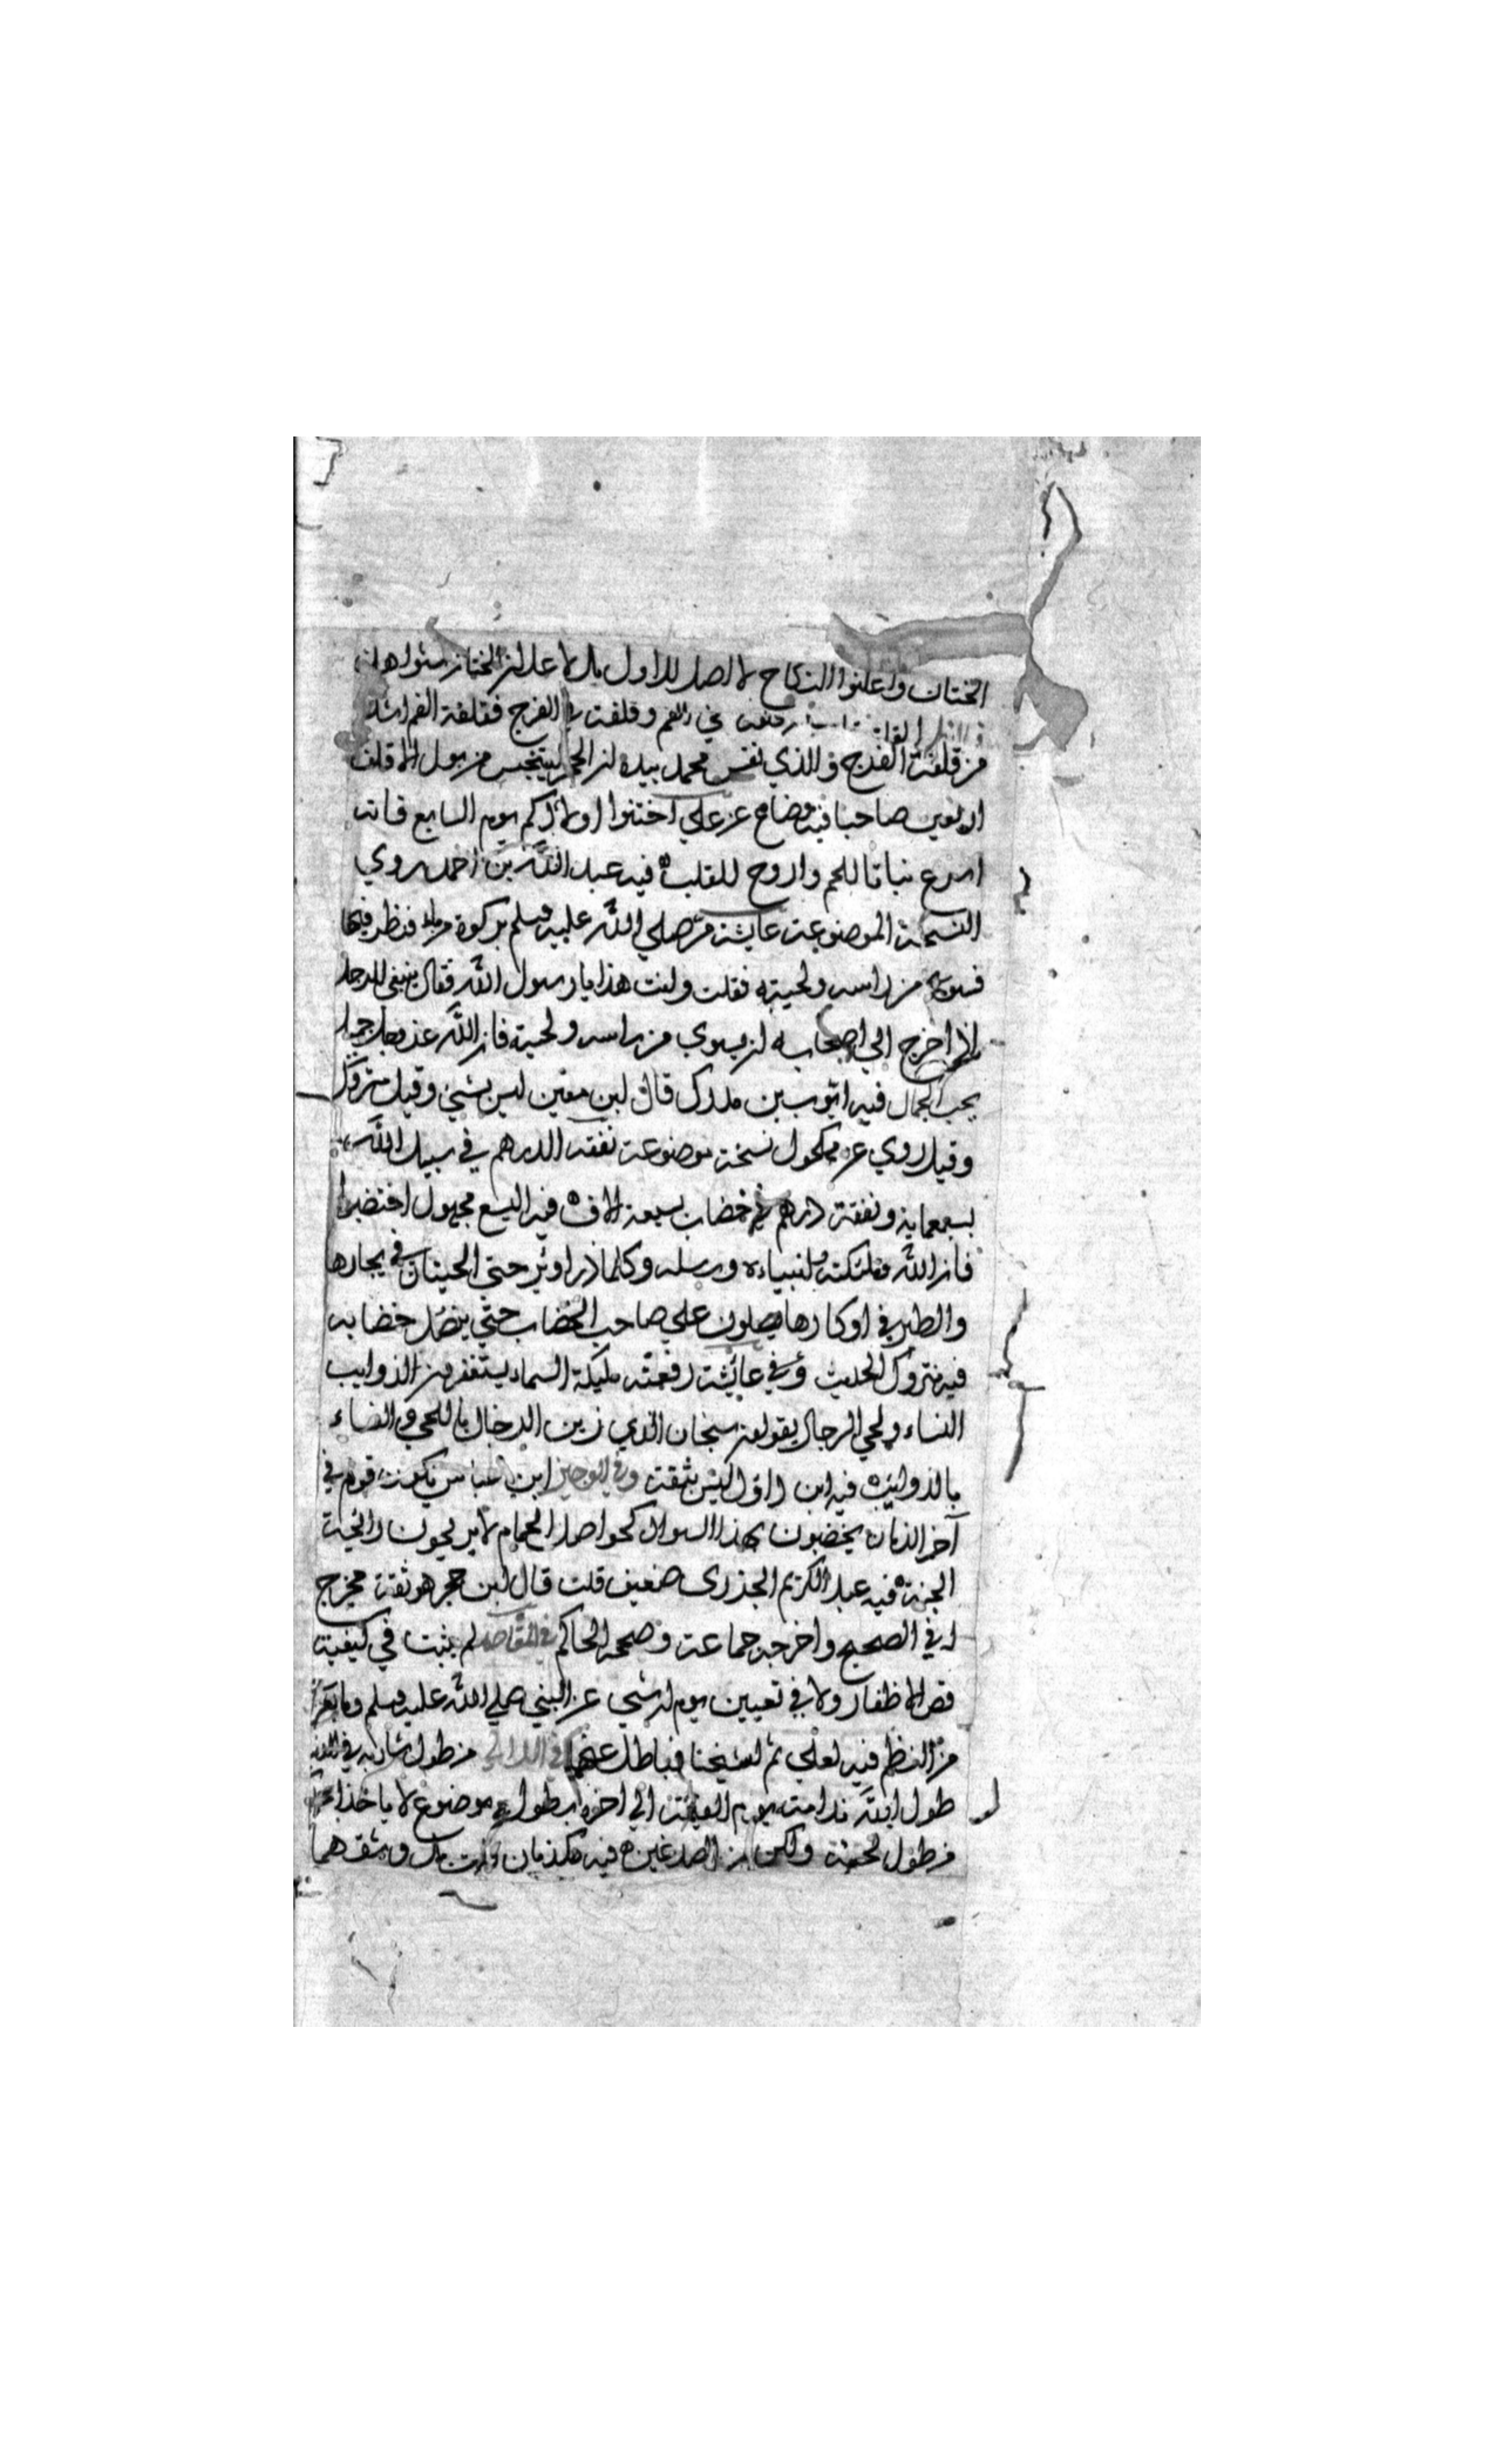 الختان واعلنوا النكاح لا اصل للاول بل الاعلان الختان
القلفة قلفتان في الفم وقلفت في الفرج فقلفة الفم اشد
من قلفت الفرج والذي نفس محمد بيده لن الحجر ليتنجس من بول الاقلف
اربعين صباحا فيه وضاع عن علي اختنوا اولادكم يوم السابع فانه
اسرع نباتا للحم واروح للقلب ه فيه عبد الله بن احمد روي
النسخة الموضوعت عايشت مر صلي الله عليه وسلم بركوة ماء فنظر فيها
فسوي من راسه ولحيته فقلت ولنت هذا يا رسول الله فقال ينبغي للرجل
اذا خرج الي اصحابه لن يسوي من راسه ولحيته فان الله عز وجل جميل
يحب الجمال فيه ايوب بن مدرك قال لبن معين ليس بشئ وقيل متروك
وقيل روي عن مكحول نسخت موضوعت نفقه الدرهم في سبيل الله
بسبعماية ونفقت درهم في خضاب بسبعة الاف ه فيه اليسع مجهول اختضبوا
فان الله وملئكته وانبياءه ورسله وكلما ذرا وبر حتي الحيتان في بحارها
والطير في اوكارها يصلون علي صاحب الخضاب حتي ينصل خضابه
فيه متروك الحديث وفي عائشت رفعته مليكة السماء يستغفرون الذوايب
النساء ولحي الرجال يقولون سبحان الذي زين الرجال باللحي والنساء
بالذوايب ه فيه ابن داؤل ليس بثقت وفي الوجيز ابن عباس يكون قوم في
آخر الزمان يخضبون بهذا السواد كحواصل الحمام لا يريحون رائحة
الجنة ه فيه عبد الكريم الجزري ضعيف قلت قال لبن حجر هو ثقت مخرج
له في الصحيح واخرجه جماعت وصححه الحاكم في المقاصد لم يثبت في كيفية
قص الاظفار ولا في تعيين يوم له شئ عن النبي صلي الله عليه وسلم وما يعزي
من النظم فيه لعلي ثم لشيخنا فباطل عنهما في اللالي من طول شاربه في الدنيا
طول الله ندامته يوم القيمت الي اخره بطوله موضوع لا ياخذ احدكم
من طول لحيته ولكن من الصدغين ه فيه